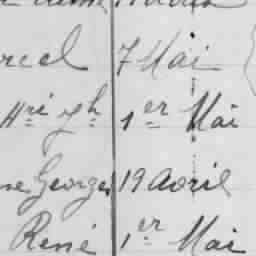 rcel 7 Mai
Hri Jh 1er Mai
ne Georges 19 avril
René 1er Mai